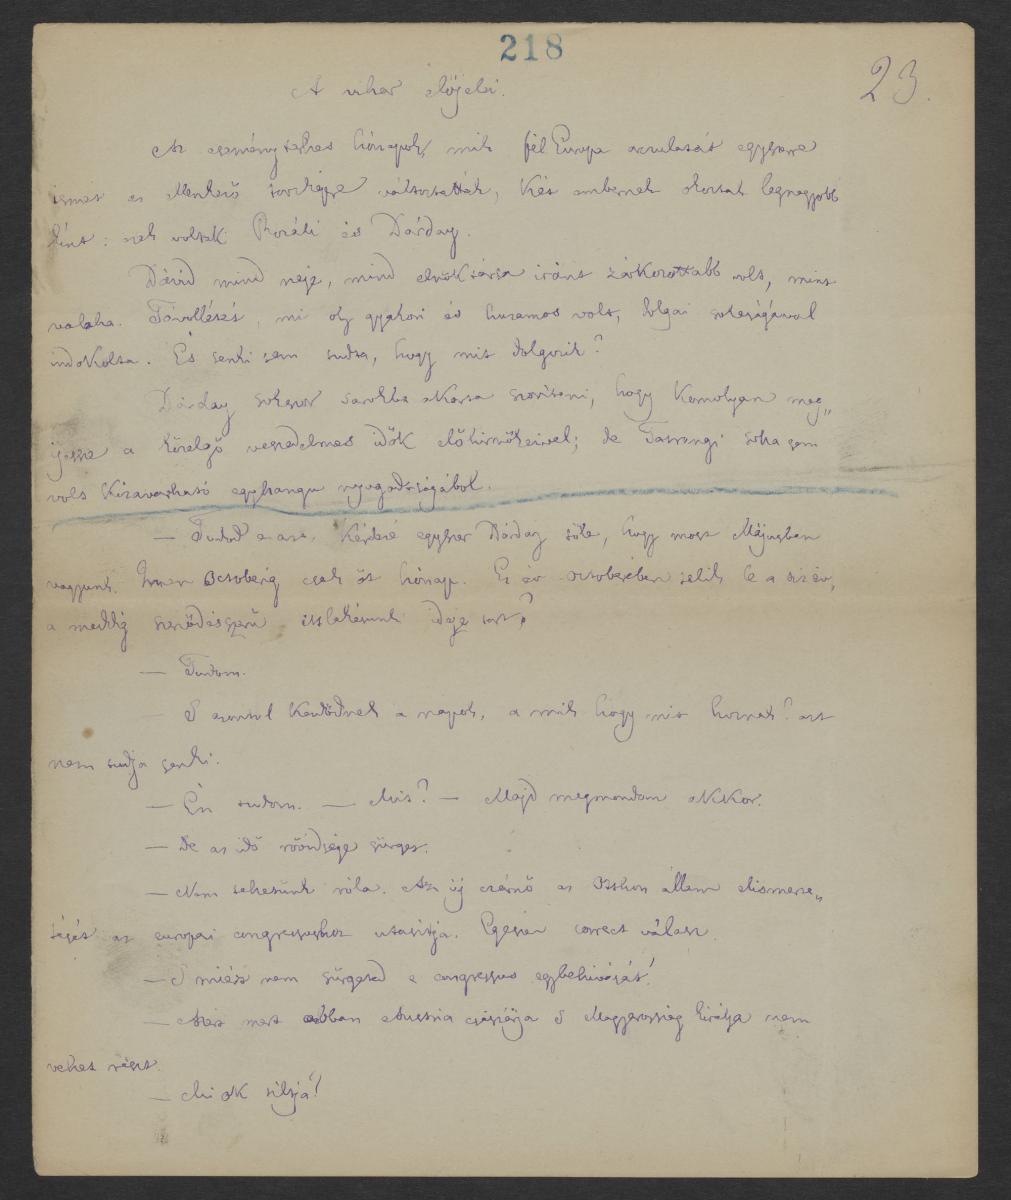 218
23.
A vihar előjelei.
Az eseményteljes hónapok, mik fél Európa arczulatát egyszerre
ismét az ellenkező torzképre változtatták, két embernek okoztak legnagyobb
kínt: ezek voltak Rozáli és Dárday.
Dávid mind neje, mind elnöktársa iránt zárkozottabb volt, mint
valaha. Távollétét, mi oly gyakori és huzamos volt, dolgai sokaságával
indokolta. És senki sem tudta, hogy mit dolgozik?
Dárday sokszor sarokba akarta szorítani, hogy komolyan meg„
ijessze a közelgő veszedelmes idők előhirnökeivel; de Tatrangi soha sem
volt kizavarható egyhangu nyugodtságából.
— Tudod e azt, kérdé egyszer Dárday tőle, hogy most Májusban
vagyunk. Innen Octoberig csak öt hónap. Ez év octoberében telik le a tiz év,
a meddig szerződésszerű ittlakásunk ideje tart?
— Tudom.
— S azontul kezdődnek a napok, a mik hogy mit hoznak? azt
nem tudja senki.
— Én tudom. — Mit? — Majd megmondom akkor.
— De az idő rövidsége sürget.
— Nem tehetünk róla. Az új czárnő az Otthon állam elismerte„
tését az europai congressushoz utasítja. Egészen correct válasz.
— S miért nem sürgeted e congressus egybehivását?
— Azért mert abban Austria császárja s Magyarország királya nem
vehet részt.
— Mi ok tiltja?